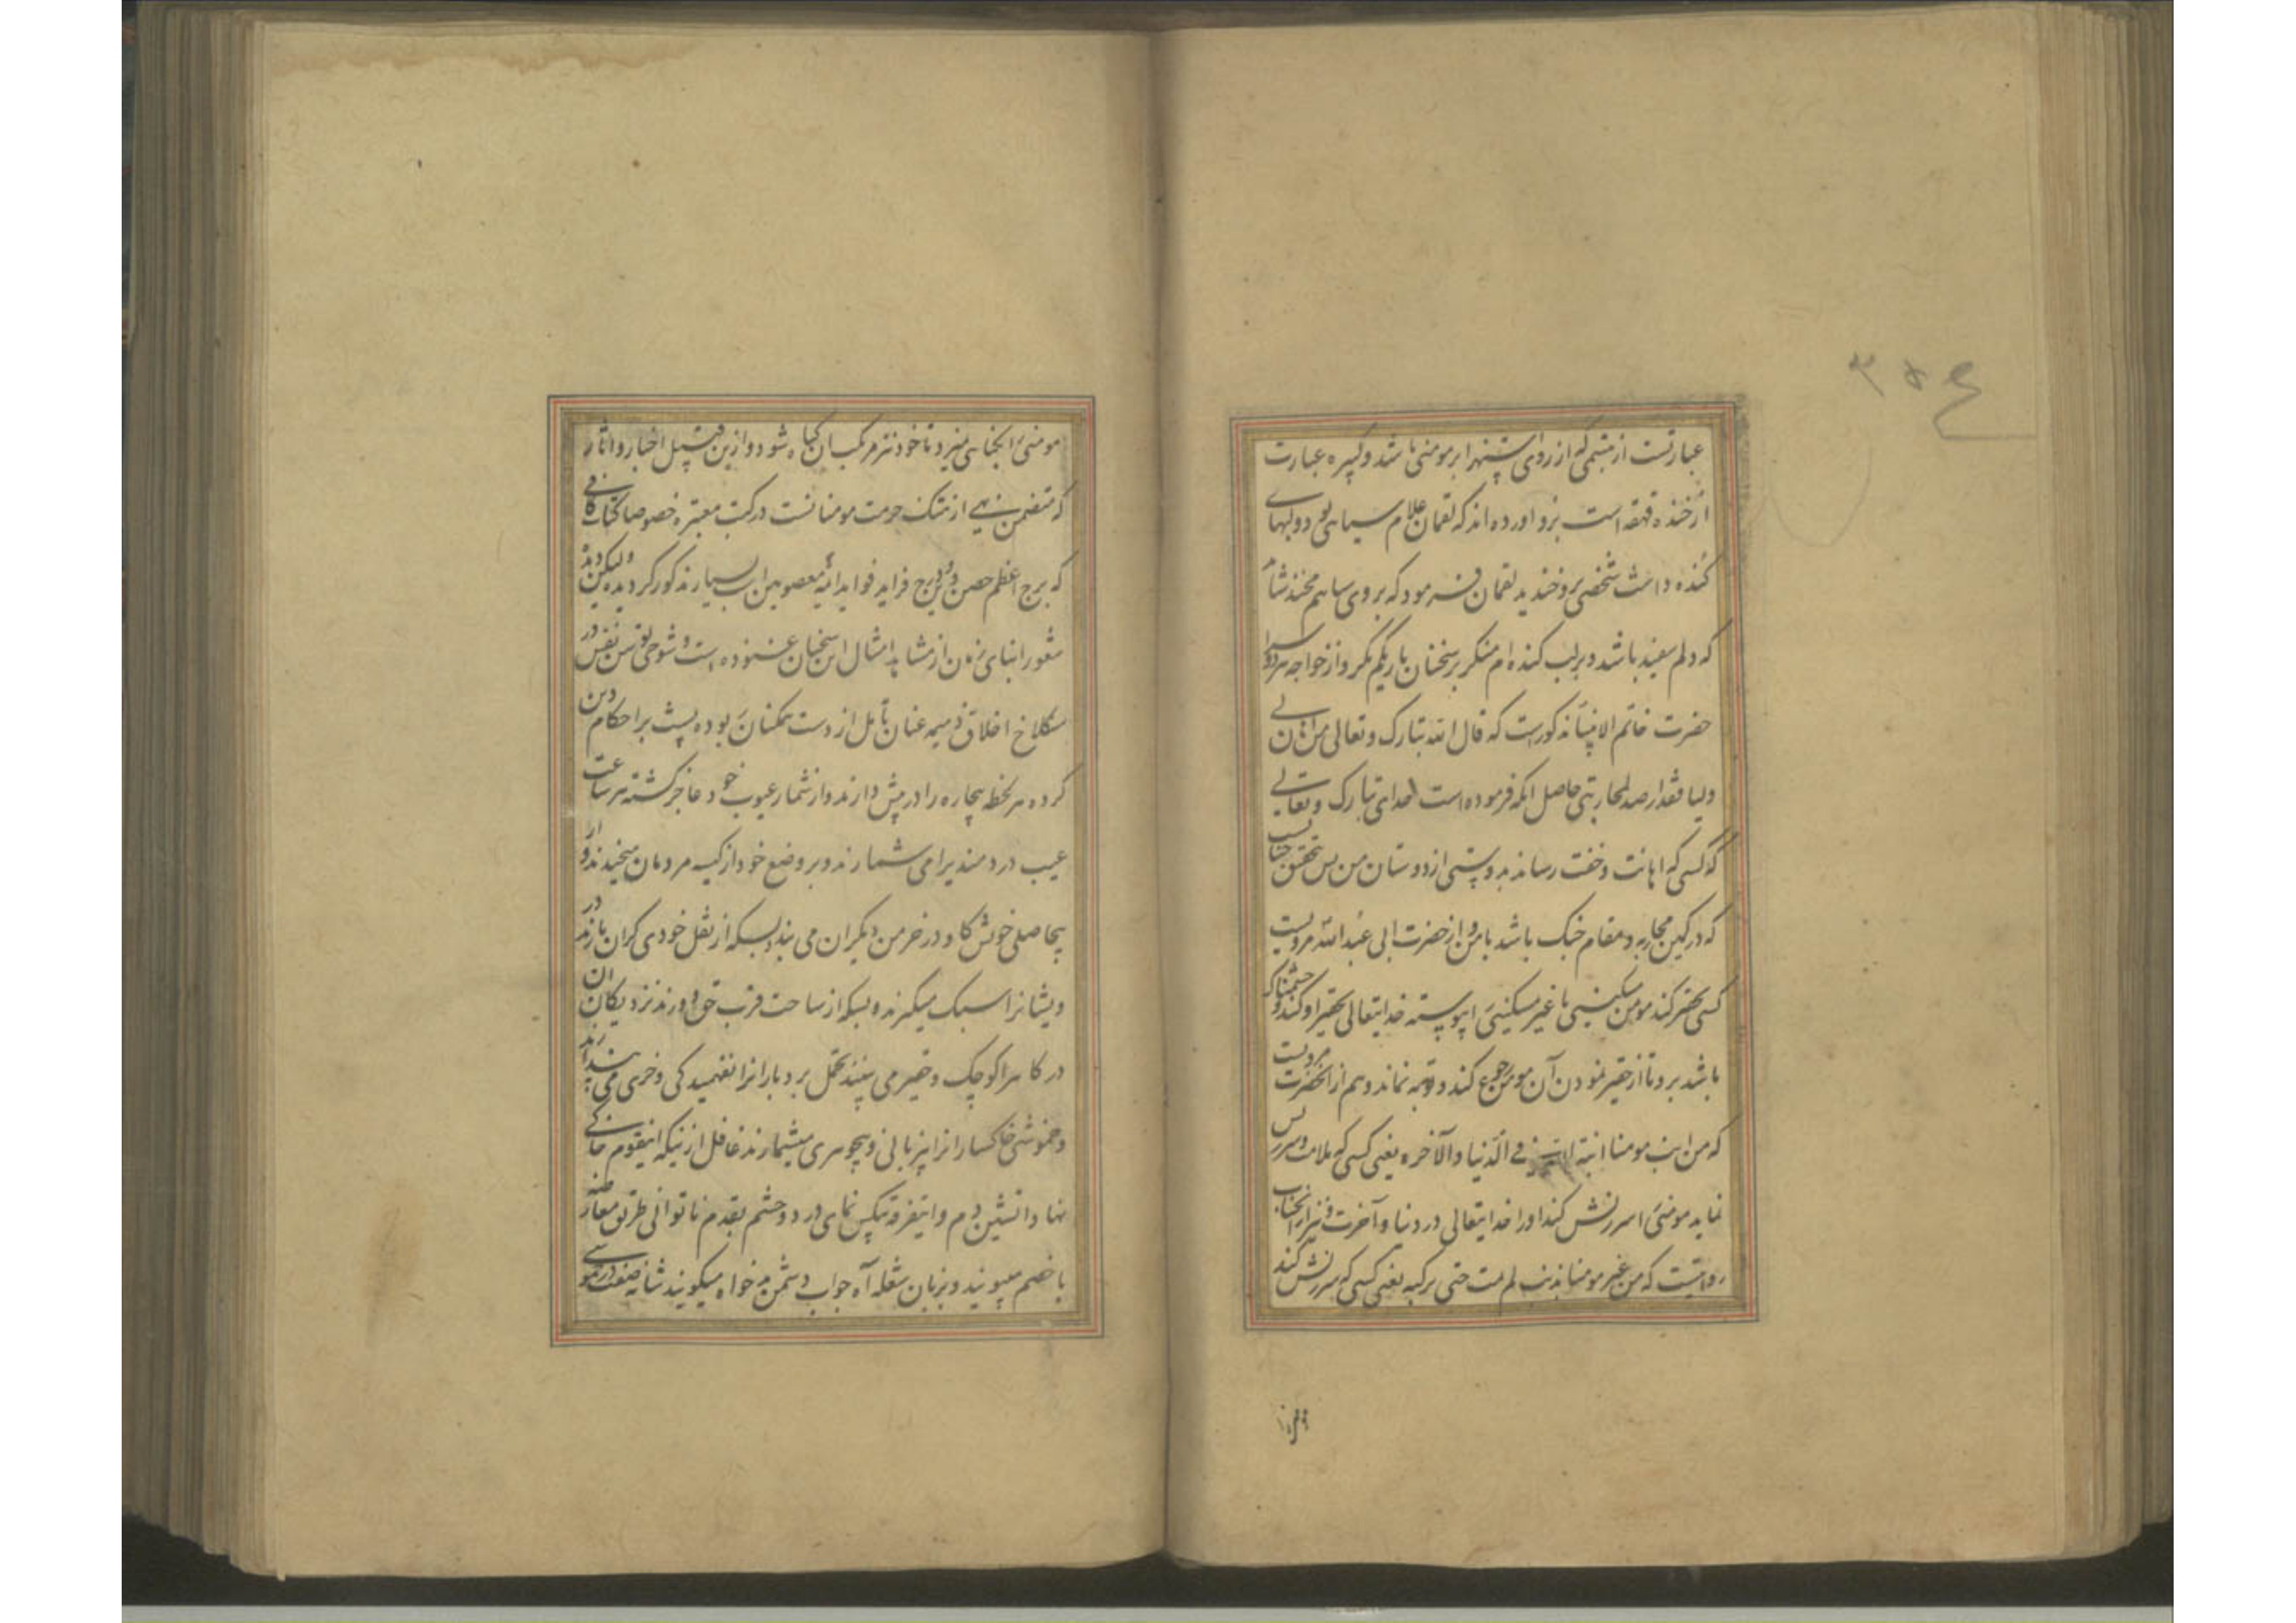 ۳۵۴
عبارتست از تبسمی که از روی استهزا بر مومنی باشد و کبیره عبارت
از خنده قهقهه است برو آورده اند که لقمان غلام سیاهی بود و لبهای
کنده داشت شخصی برو خندید لقمان فرمود که بر روی سیاهم مخند شاید
که دلم سفید باشد و بر لب کنده ام منکر بر سخنان باریکم نکر و از خواجه سرا
حضرت خاتم الانبیا مذکورست که قال الله تبارک و تعالی من اهان لی
ولیا فقد ارصد لمحاربتی حاصل آنکه فرموده است خدای تبارک و تعالی
که کسی که اهانت و خفت رساند بدوستی از دوستان من پس بتحقیق
که در کمین محاربه و مقام جنک باشد با من و از حضرت ابی عبدالله مرویست
کسی تحقیر کند مومن مسکینی یا غیر مسکینی را پیوسته خدایتعالی تحقیر او کند و خشمناک
باشد برو تا از حقیر نمودن آن مومن رجوع کند و توبه نماند و هم از آنحضرت مرویست
که من انب مومنا انبه الله فی الدنیا والآخره یعنی کسی که ملامت و سرزنش
نماید مومنی را سرزنش کند او را خدایتعالی در دنیا و آخرت و نیز از آنجناب
روایتست که من عیر مومنا بذنب لم یمت حتی یرکبه یعنی کسی که سرزنش کند
مومنی را بکناهی نمیرد تا خود نیز مرتکب آن کناه شود و ازین قبیل اخبار و آثار
که متضمن نهی از هتک حرمت مومنانست در کتب معتبره خصوصا کتاب کافی
که برج اعظم حصن دین و درج فراید فواید ائمه معصومین است بسیار مذکور کردیده لیکن
مغرور ابنای زمان از مشاهده امثال این سخنان غنوده است و شوخی توسن نفس در
سنکلاخ اخلاق ذمیمه عنان تأمل از دست همکنان ربوده پشت بر احکام دین
کرده هر لحظه بیچاره را در پیش دارند و از شمار عیوب خود عاجز کشته هر ساعت
عیب دردمندی را می شمارند و بر وضع خود از کیسه مردمان میخندند و از
بیحاصلی خویش کاو در خرمن دیکران می بندند بسکه از ثقل خودی کران بارند در
ویشانرا سبک میکیرند و بسکه از ساحت قرب حق دورند نزدیکان آن
درکاه را کوچک و حقیر می بینند تحمل بردبارانرا نفهمیدکی و خری می پندارند
و خموشی خاکسارانرا بیزبانی و بیجوهری میشمارند غافل از نیکه اینقوم خاکی
نهاد آتشین دم و اینفرقه بیکس نمای در دو چشم بقدم ناتوانی طریق معارضه
با خصم میپویند و بزبان شعله آه جواب دشمن بدخواه میکویند